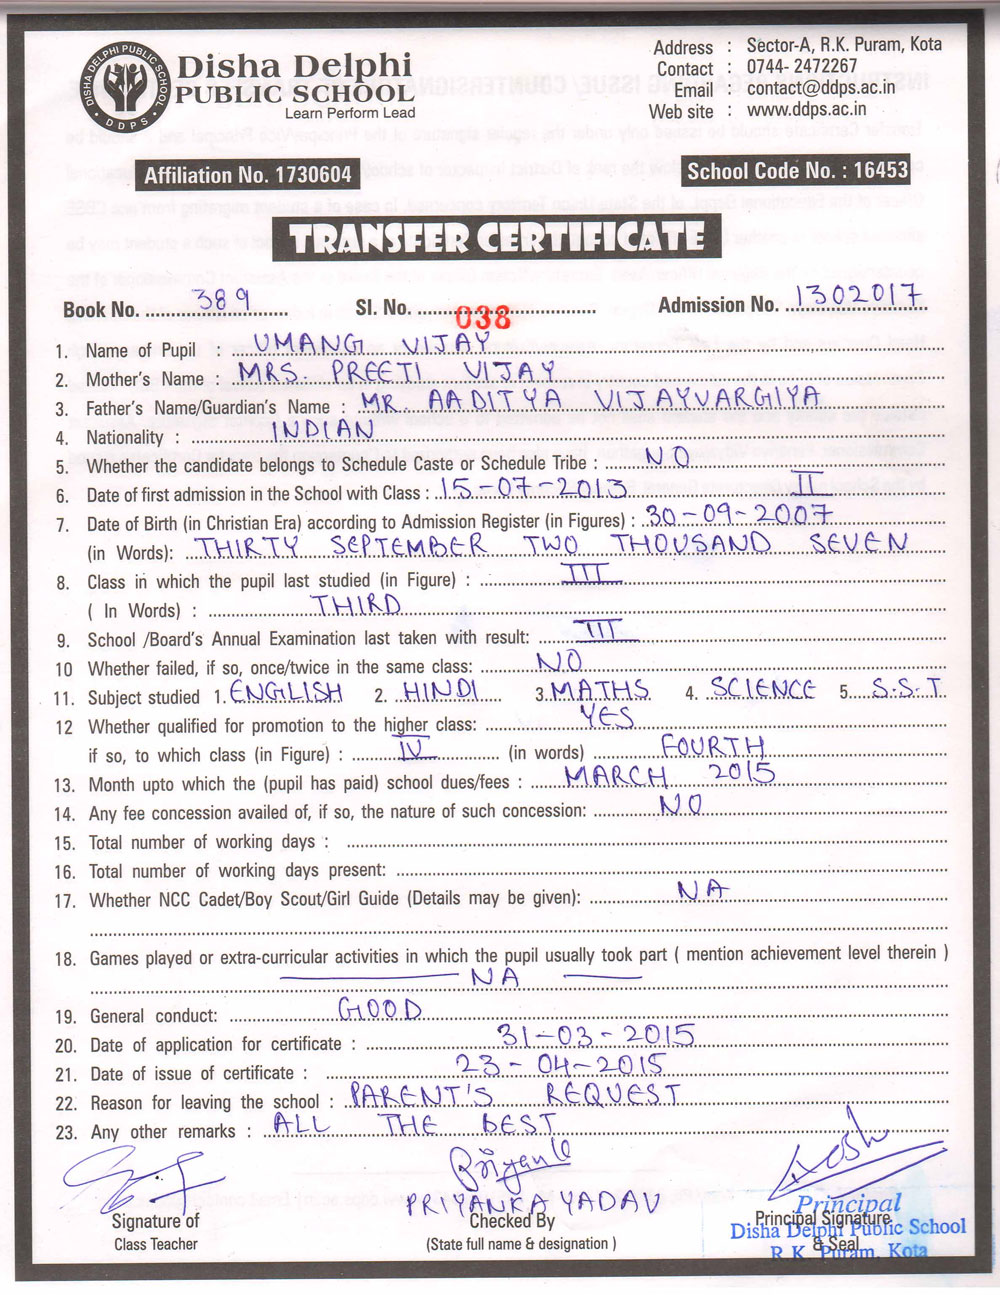 DISHA DELPHI PUBLIC SCHOOL
D D P S
Disha Delphi
PUBLIC SCHOOL
Learn Perform Lead
Address : Sector-A, R.K. Puram, Kota
Contact : 0744- 2472267
Email : contact@ddps.ac.in
Web site : www.ddps.ac.in
Affiliation No. 1730604
School Code No. : 16453
TRANSFER CERTIFICATE
Book No. 389 Sl. No. 038 Admission No. 1302017
1. Name of Pupil : UMANG VIJAY
2. Mother's Name : MRS. PREETI VIJAY
3. Father's Name/Guardian's Name : MR AADITYA VIJAYVARGIYA
4. Nationality : INDIAN
5. Whether the candidate belongs to Schedule Caste or Schedule Tribe : NO
6. Date of first admission in the School with Class : 15-07-2013 II
7. Date of Birth (in Christian Era) according to Admission Register (in Figures) : 30-09-2007
(in Words): THIRTY SEPTEMBER TWO THOUSAND SEVEN
8. Class in which the pupil last studied (in Figure) : III
( In Words) : THIRD
9. School /Board's Annual Examination last taken with result: III
10 Whether failed, if so, once/twice in the same class: NO
11. Subject studied 1. ENGLISH 2. HINDI 3. MATHS 4. SCIENCE 5. S.S.T
12 Whether qualified for promotion to the higher class: YES
if so, to which class (in Figure) : IV (in words) FOURTH
13. Month upto which the (pupil has paid) school dues/fees : MARCH 2015
14. Any fee concession availed of, if so, the nature of such concession: NO
15. Total number of working days :
16. Total number of working days present:
17. Whether NCC Cadet/Boy Scout/Girl Guide (Details may be given): NA
18. Games played or extra-curricular activities in which the pupil usually took part ( mention achievement level therein )
NA
19. General conduct: GOOD
20. Date of application for certificate : 31-03-2015
21. Date of issue of certificate : 23-04-2015
22. Reason for leaving the school : PARENT'S REQUEST
23. Any other remarks : ALL THE BEST
PRIYANKA YADAV
Signature of
Class Teacher
Checked By
(State full name & designation )
Principal Signature
& Seal
Principal
Disha Delphi Public School
R.K. Puram, Kota